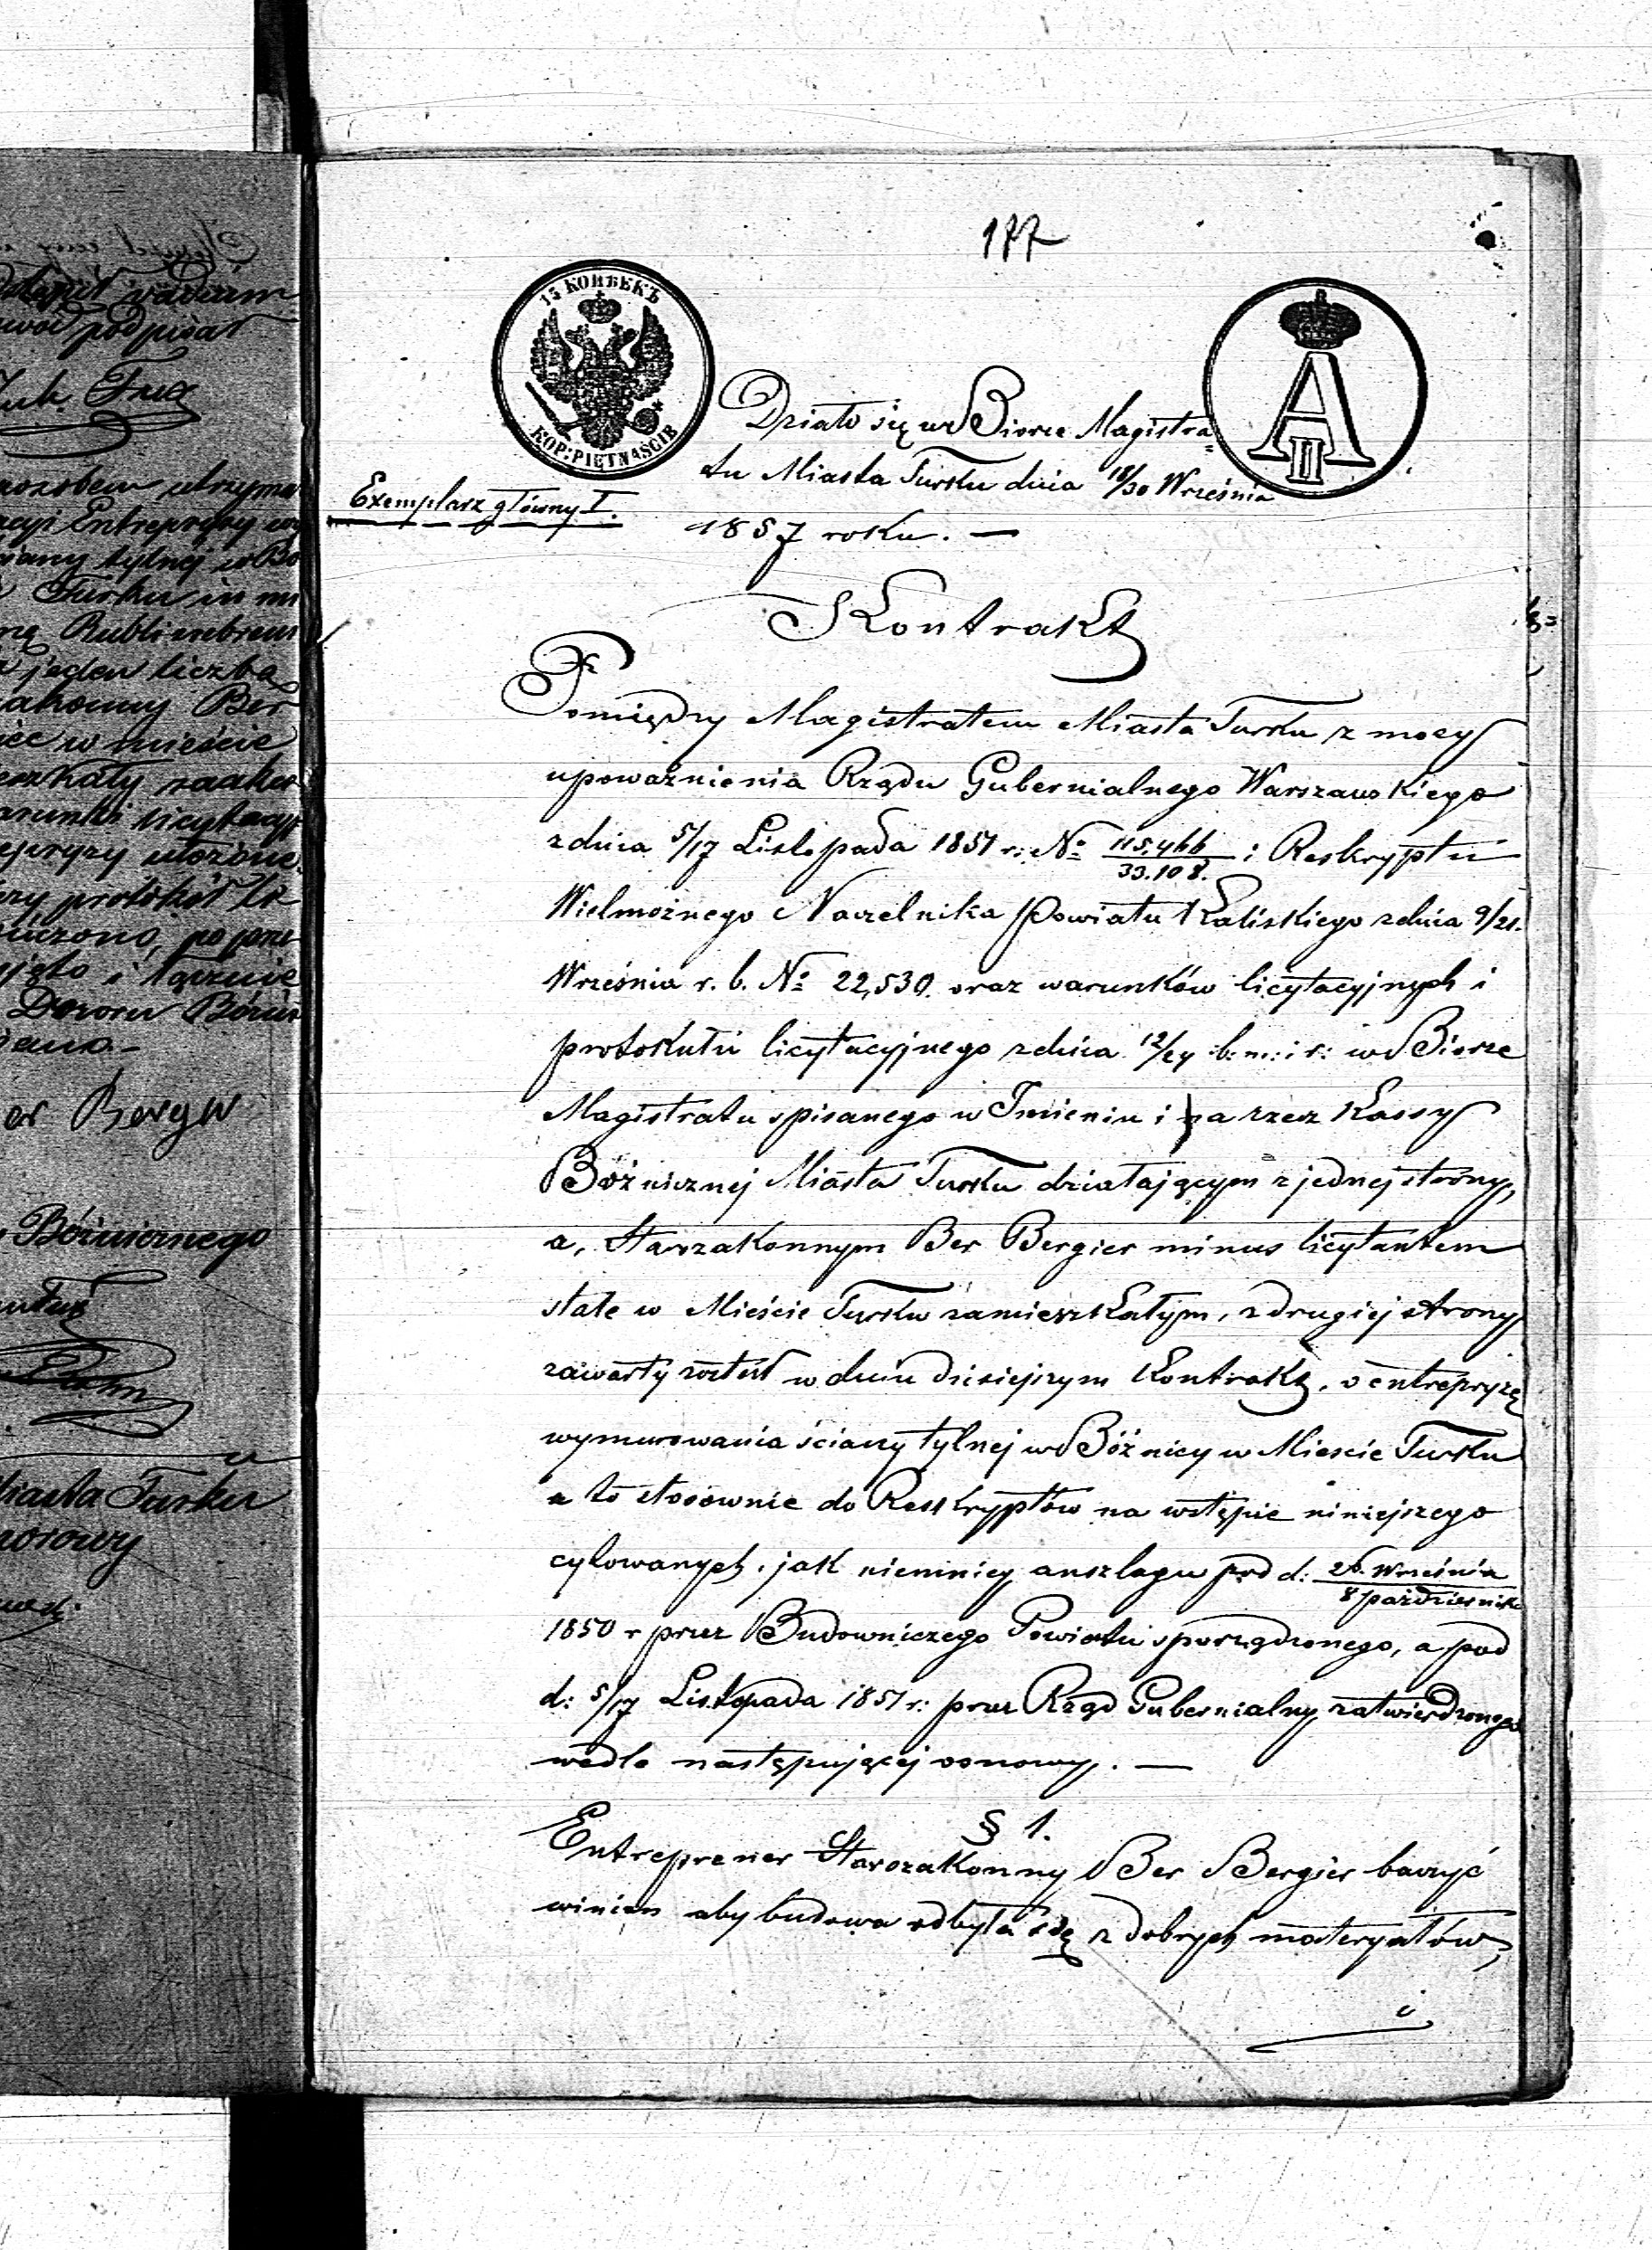 177
15 КОПѢЕКЪ
KOP: PIĘTNAŚCIE
A
II
Działo się w Biorze Magistra=
tu Miasta Turku dnia 18/30 Września
1857 roku. —
Exemplarz główny I.
Kontrakt
Pomiędzy Magistratem Miasta Turku z mocy
upoważnienia Rządu Gubernialnego Warszawskiego
z dnia 5/17 Listopada 1851 r: № 115.466/33.108. i Reskryptu
Wielmożnego Naczelnika Powiatu Kaliskiego z dnia 9/21.
Września r. b. № 22,530. oraz warunków licytacyjnych i
protokułu licytacyjnego z dnia 12/24 b: m: i r: w Biorze
Magistratu spisanego w Imieniu i na rzecz Kassy
Bóżnicznej Miasta Turku działającym z jednej strony,
a, Starozakonnym Ber Bergier minus licytantem
stale w Mieście Turku zamieszkałym, z drugiej strony
zawarty został w dniu dzisiejszym Kontrakt, o entrepryzę
wymurowania ściany tylnej w Bóżnicy w Mieście Turku
a to stosownie do Reskryptów na wstępie niniejszego
cytowanych, jak niemniej anszlagu pod d: 26. Września/8 Październik
1850 r przez Budowniczego Powiatu sporządzonego, a pod
d: 5/17 Listopada 1851 r: przez Rząd Gubernialny zatwierdzonego
wedle następującej osnowy. —
§ 1.
Entreprener Starozakonny Ber Bergier baczyć
winien aby budowa odbyła się z dobrych materyałów,
i
wadium
podpisał
Entrepryzy
ściany tylnej w Bo
Turku in mi
Rublisrebrem
jeden liczbą
Ber
w mieście
licytacyj
protokół
i łącznie
Dozoru Bóżni
Ber Bergier
Bóżnicznego
Miasta Turku